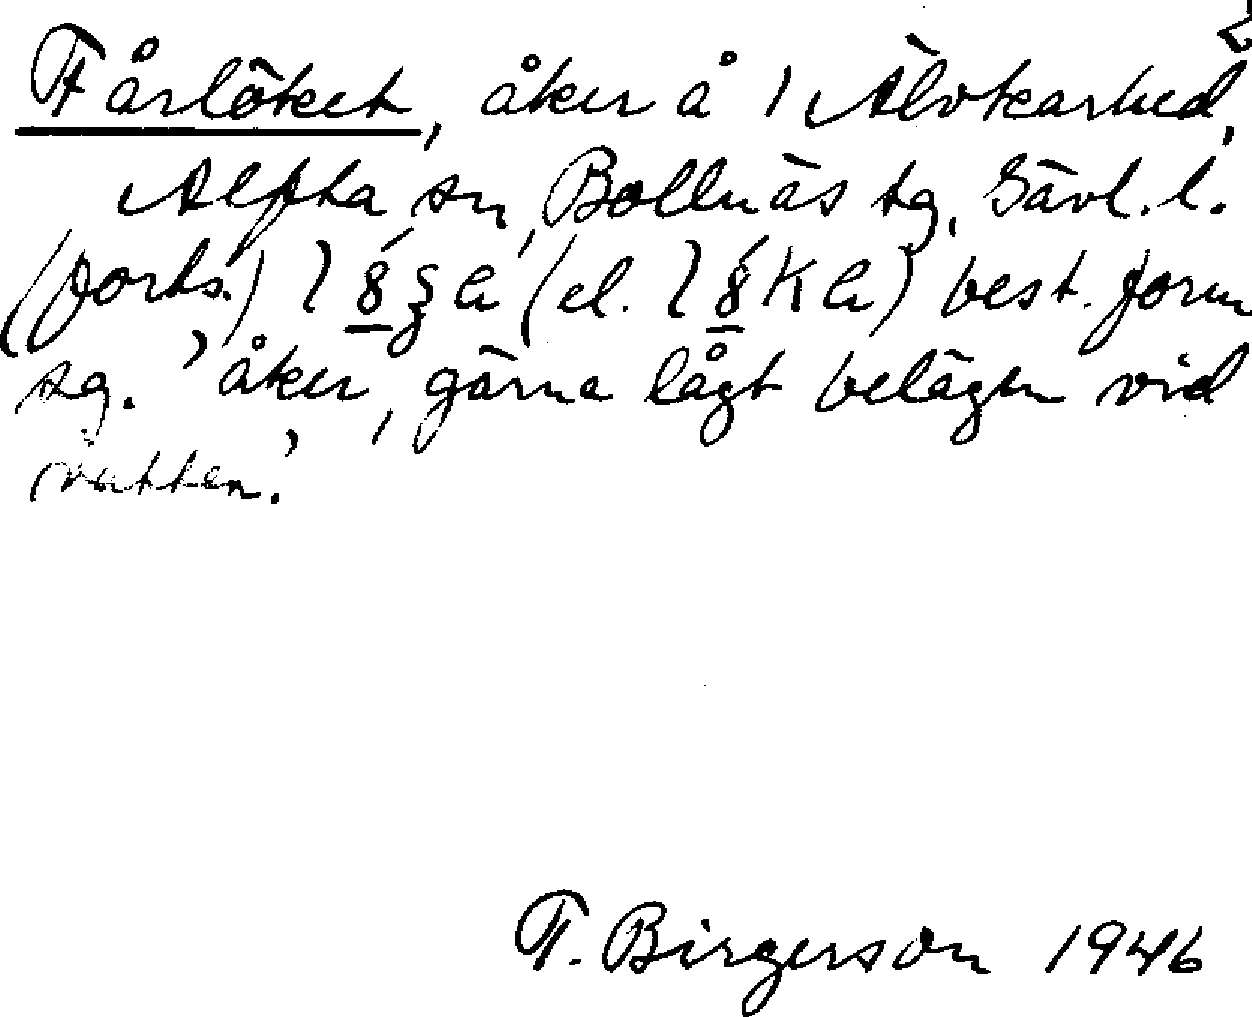 2
Fårlöket, åker å 1 Älvkarhed,
Alfta sn, Bollnäs tg, Gävl. l.
(forts.) l8́ʒa (el. l8́ka) best. form
sg. ’åker, gärna lågt belägen vid
vatten.’
F. Birgerson 1946